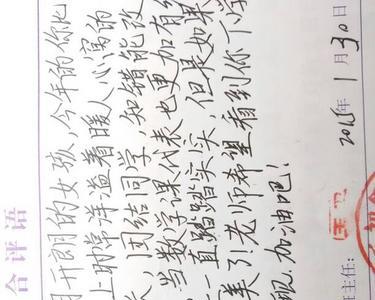 合评语
开朗的女孩，今年的你
上时常洋溢着暖人心窝的
长，团结同学，知错能改
当数学课代表也更加有
一直踏踏实实，但是如果
美了，老师希望看到你下学
现，加油吧！
主任：
2015年1月30日